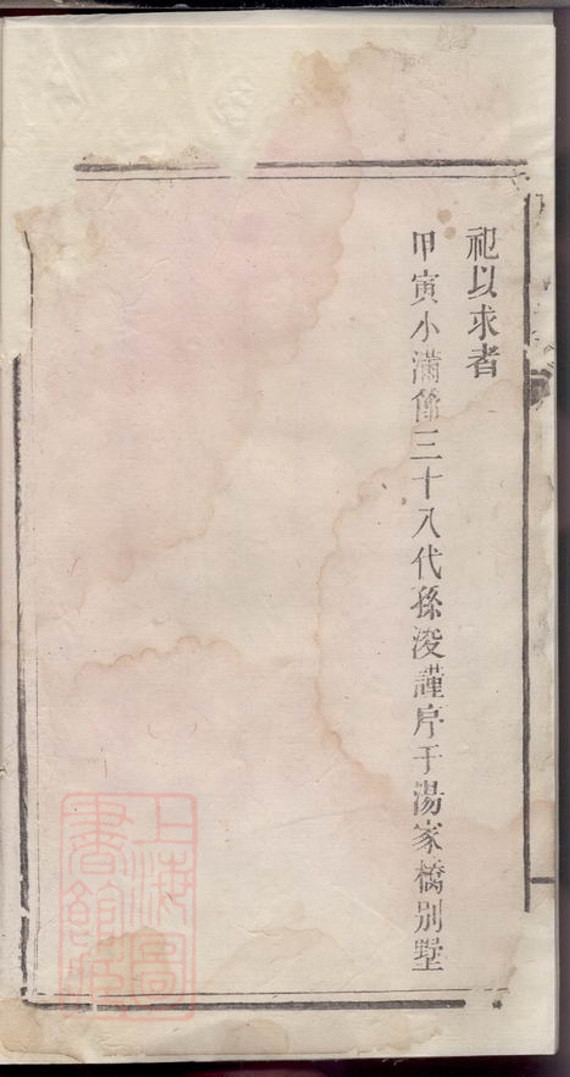 祀以求者
甲寅小滿節三十八代孫浚謹序于湯家橋別墅
上海圖
書館藏